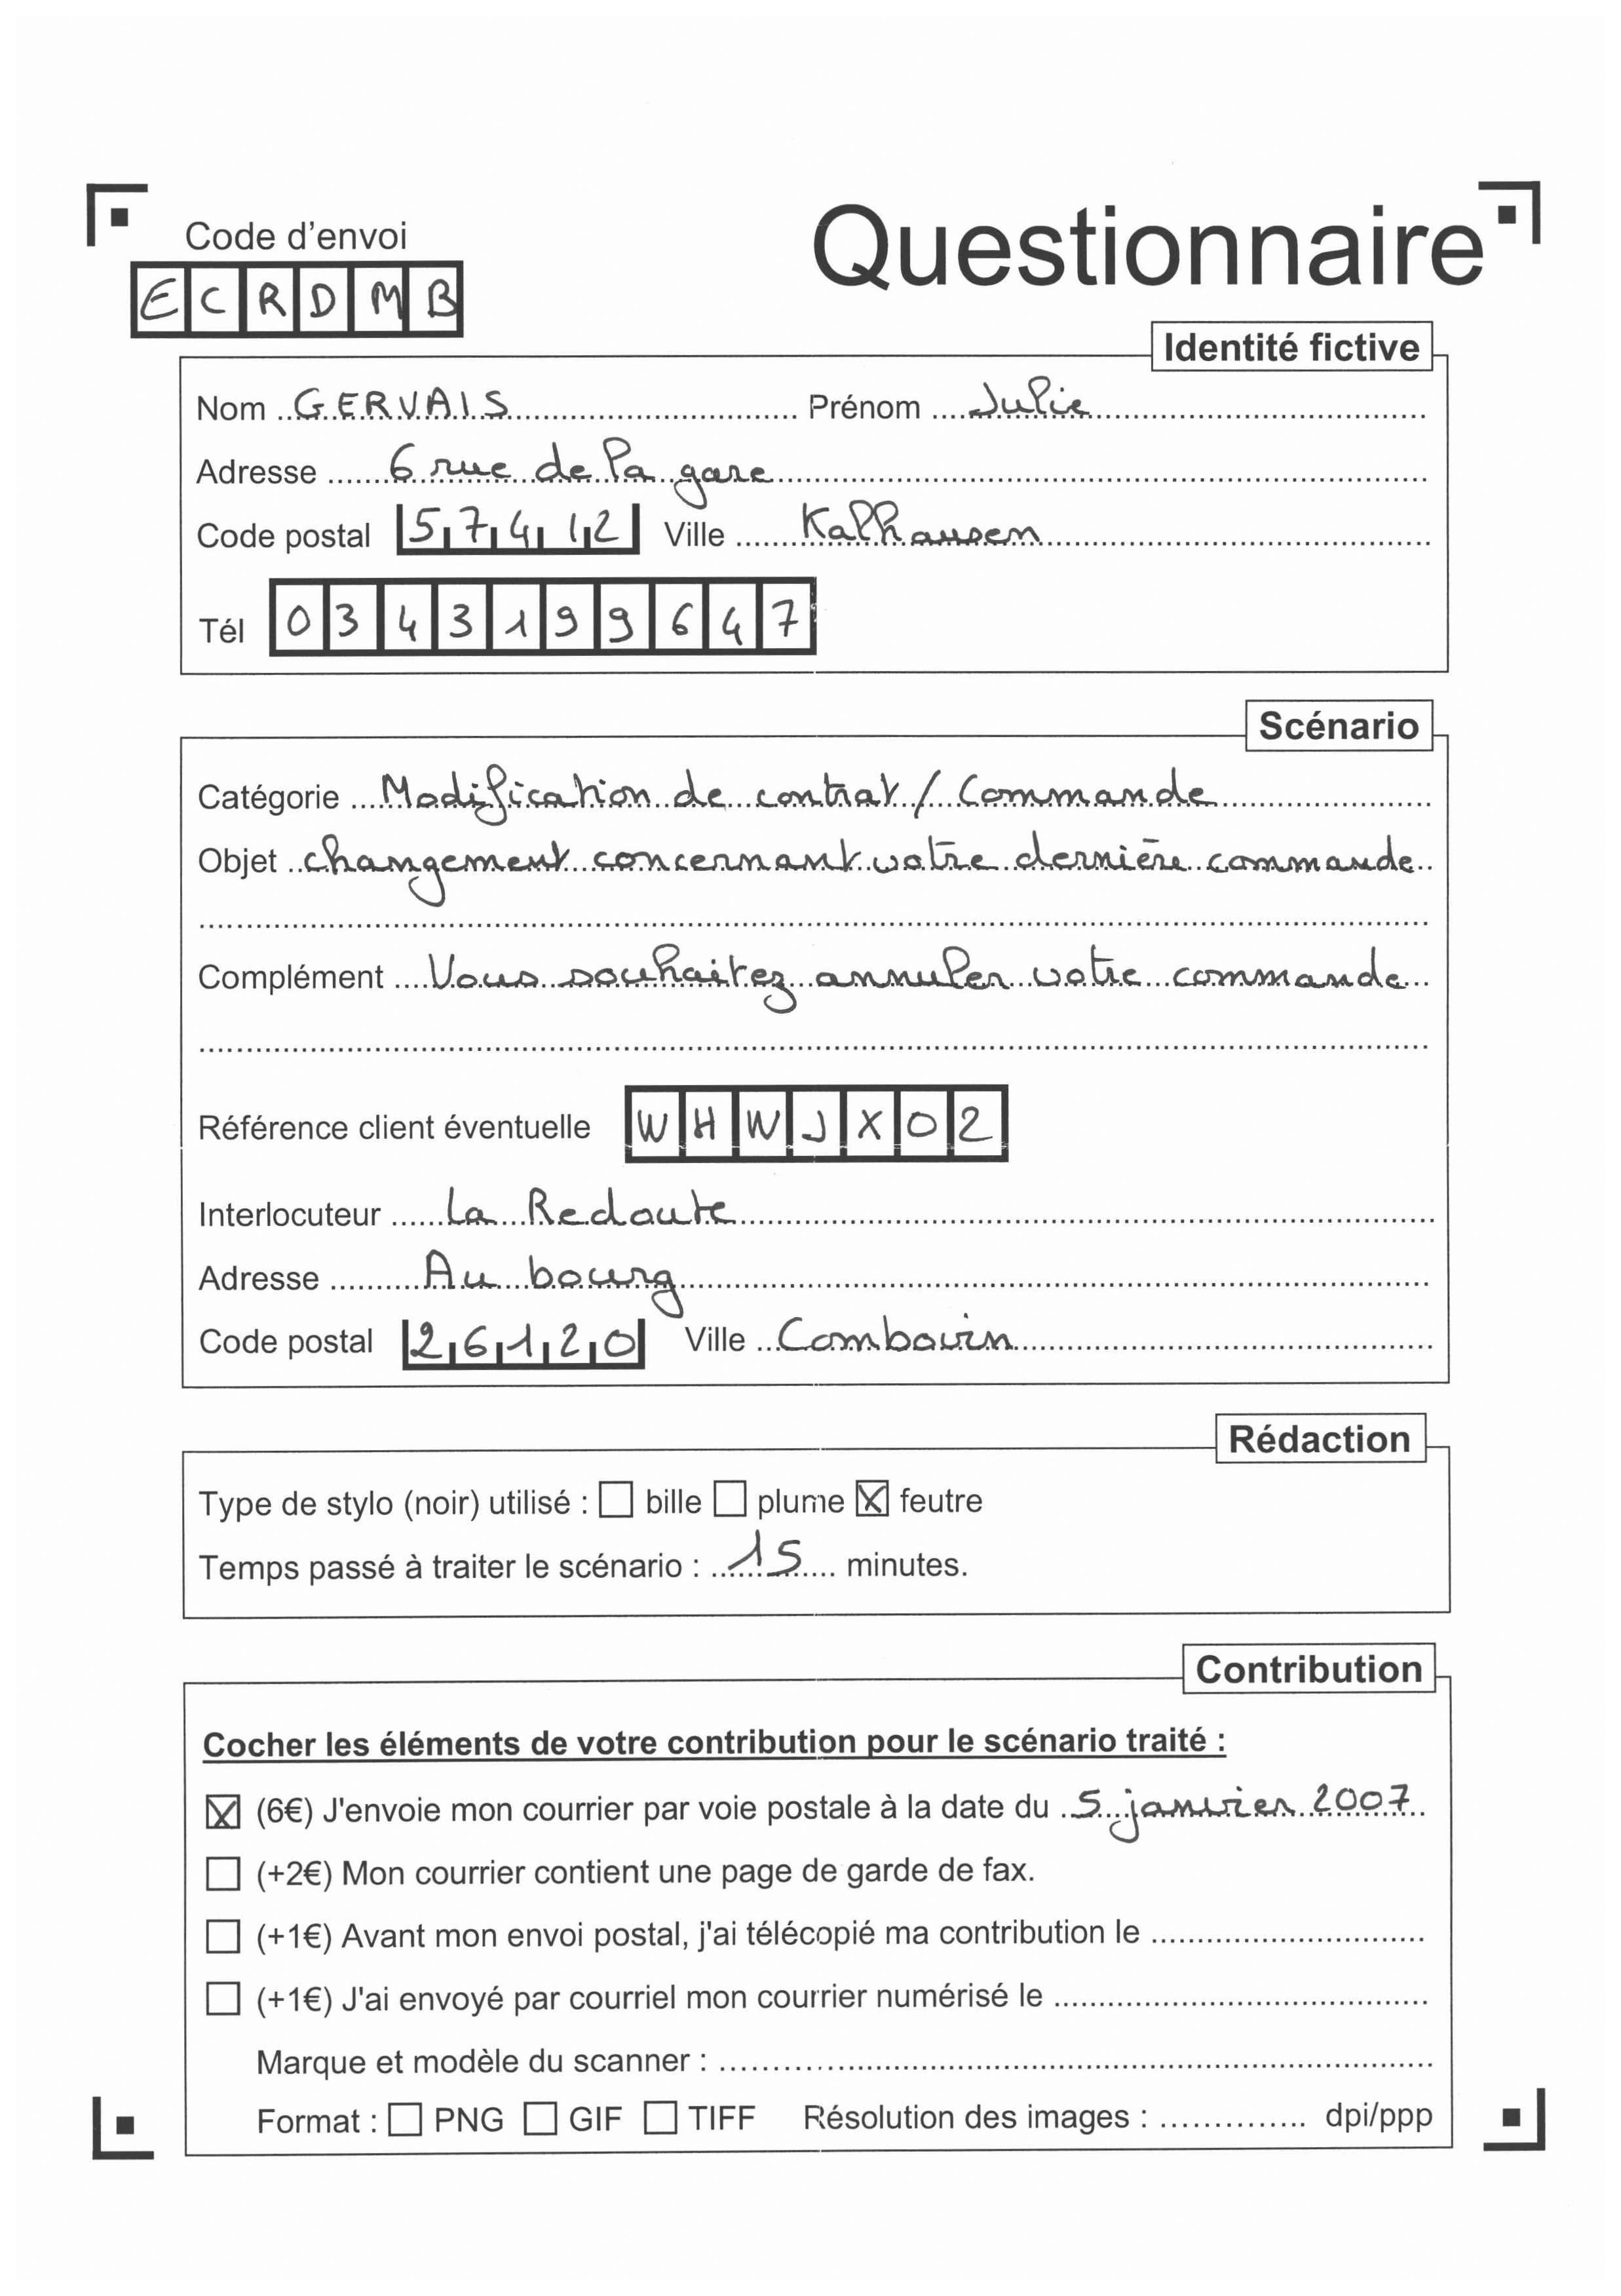 Code d'envoi
Questionnaire
E C R D M B
Identité fictive
Nom GERVAIS Prénom Julie
Adresse 6 rue de la gare
Code postal 57412 Ville Kalhausen
Tél 0343199647
Scénario
Catégorie Modification de contrat / Commande
Objet changement concernant votre dernière commande
Complément Vous souhaitez annuler votre commande
Référence client éventuelle WHWJX02
Interlocuteur La Redoute
Adresse Au bourg
Code postal 26120 Ville Combovin
Rédaction
Type de stylo (noir) utilisé : ☐ bille ☐ plume ☒ feutre
Temps passé à traiter le scénario : 15 minutes.
Contribution
Cocher les éléments de votre contribution pour le scénario traité :
☒ (6€) J'envoie mon courrier par voie postale à la date du 5 janvier 2007
☐ (+2€) Mon courrier contient une page de garde de fax.
☐ (+1€) Avant mon envoi postal, j'ai télécopié ma contribution le
☐ (+1€) J'ai envoyé par courriel mon courrier numérisé le
Marque et modèle du scanner :
Format : ☐ PNG ☐ GIF ☐ TIFF Résolution des images : dpi/ppp